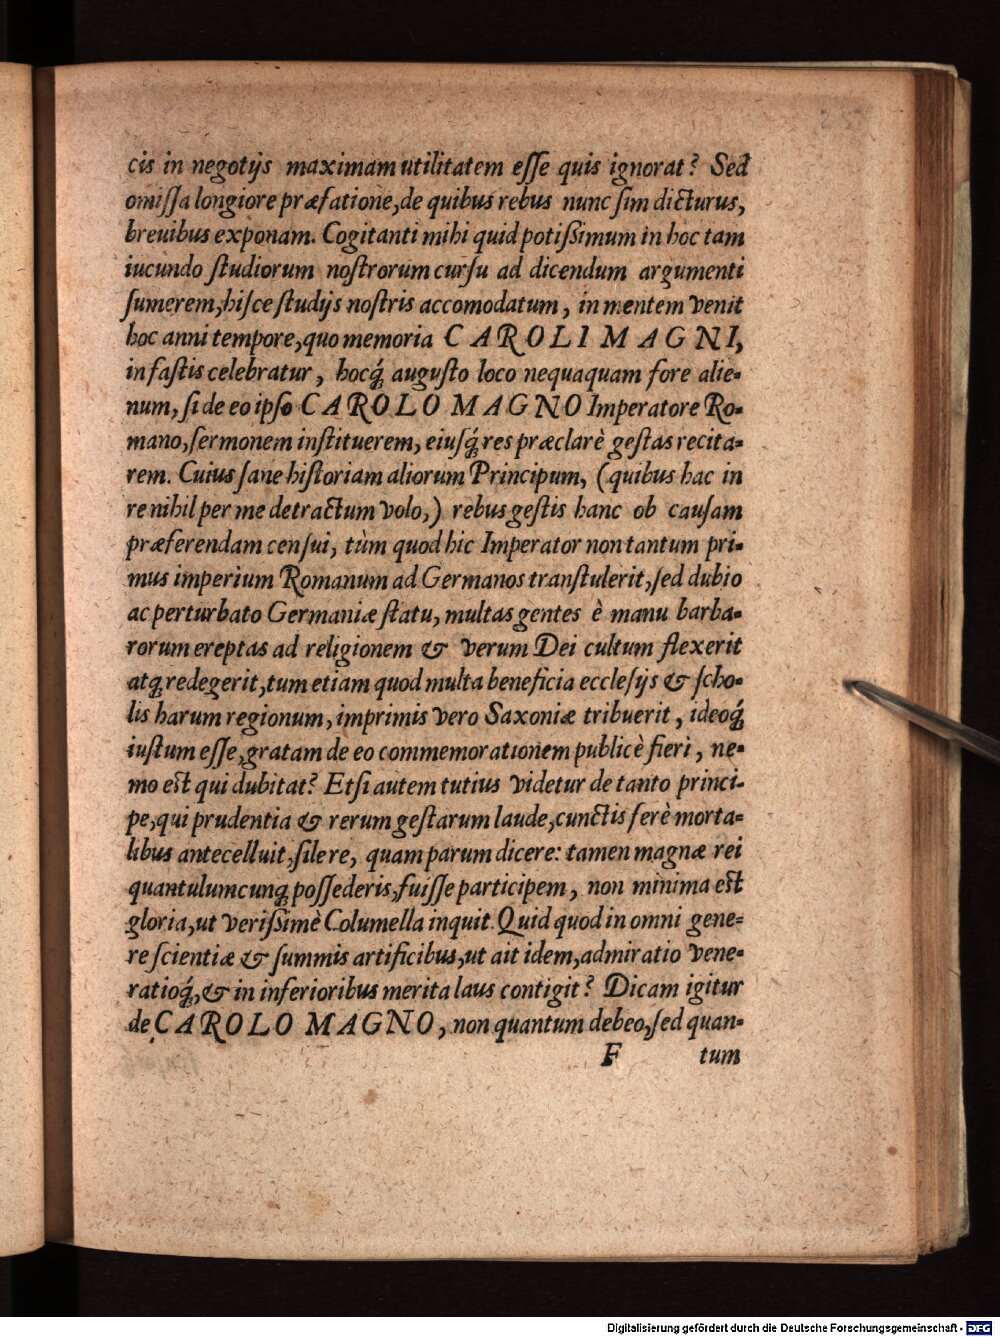 cis in negotijs maximam utilitatem eſſe quis ignorat? Sed
omiſſa longiore præfatione, de quibus rebus nunc ſim dicturus,
breuibus exponam. Cogitanti mihi quid potiſsimum in hoc tam
iucundo ſtudiorum noſtrorum curſu ad dicendum argumenti
ſumerem, hiſce ſtudijs noſtris accomodatum, in mentem venit
hoc anni tempore, quo memoria CAROLI MAGNI,
in faſtis celebratur, hocq́; auguſto loco nequaquam fore alie-
num, ſi de eo ipſo CAROLO MAGNO Imperatore Ro-
mano, ſermonem inſtituerem, eiuſq́; res præclarè geſtas recita-
rem. Cuius ſane hiſtoriam aliorum Principum, (quibus hac in
re nihil per me detractum volo,) rebus geſtis hanc ob cauſam
præferendam cenſui, tùm quod hic Imperator non tantum pri-
mus imperium Romanum ad Germanos tranſtulerit, ſed dubio
ac perturbato Germaniæ ſtatu, multas gentes è manu barba-
rorum ereptas ad religionem & verum Dei cultum flexerit
atq; redegerit, tum etiam quod multa beneficia eccleſijs & ſcho-
lis harum regionum, imprimis vero Saxoniæ tribuerit, ideoq́;
iuſtum eſſe, gratam de eo commemorationem publicè fieri, ne-
mo eſt qui dubitat? Etſi autem tutius videtur de tanto princi-
pe, qui prudentia & rerum geſtarum laude, cunctis ferè morta-
libus antecelluit, ſilere, quam parum dicere: tamen magnæ rei
quantulumcunq; poſſederis, fuiſſe participem, non minima eſt
gloria, ut veriſsimè Columella inquit. Quid quod in omni gene-
re ſcientiæ & ſummis artificibus, ut ait idem, admiratio vene-
ratioq́;, & in inferioribus merita laus contigit? Dicam igitur
de CAROLO MAGNO, non quantum debeo, ſed quan-
F tum
Digitalisierung gefördert durch die Deutsche Forschungsgemeinschaft - DFG